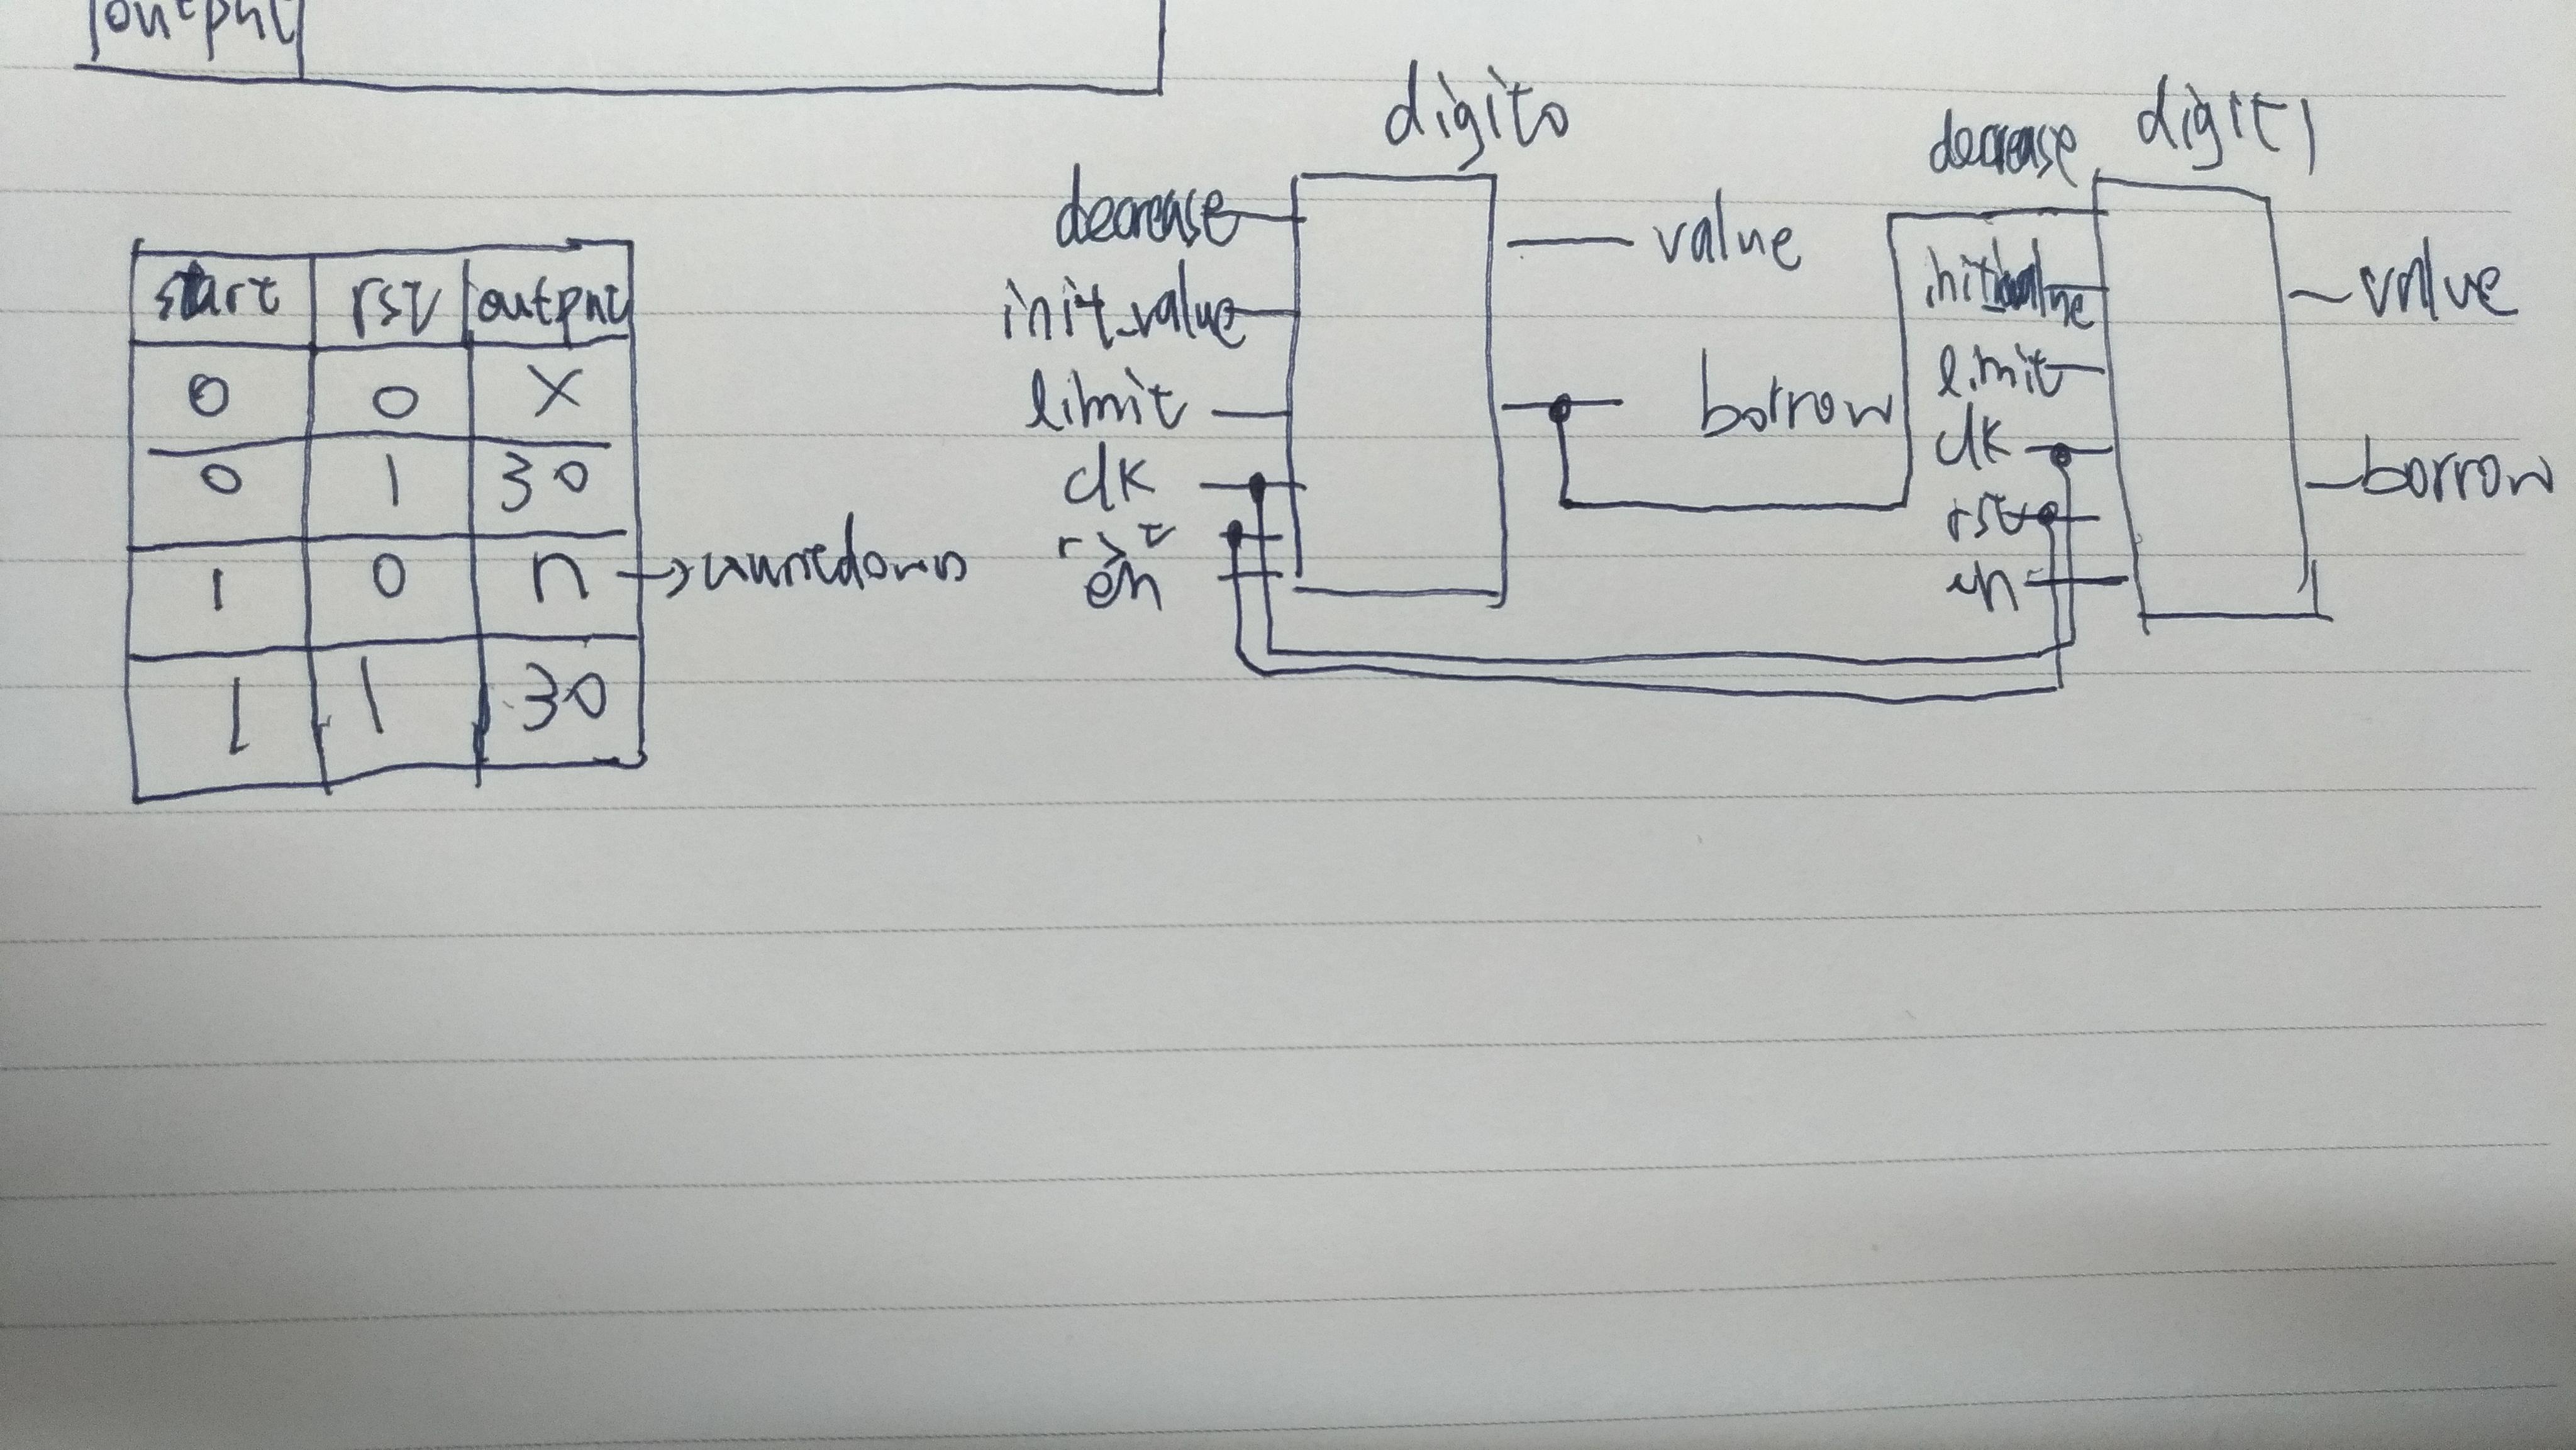 output
start rst output
0 0 X
0 1 30
1 0 n → countdown
1 1 30
digit0
decrease
init_value
limit
clk
rst
en
value
borrow
digit1
decrease
init_value
limit
clk
rst
en
value
borrow